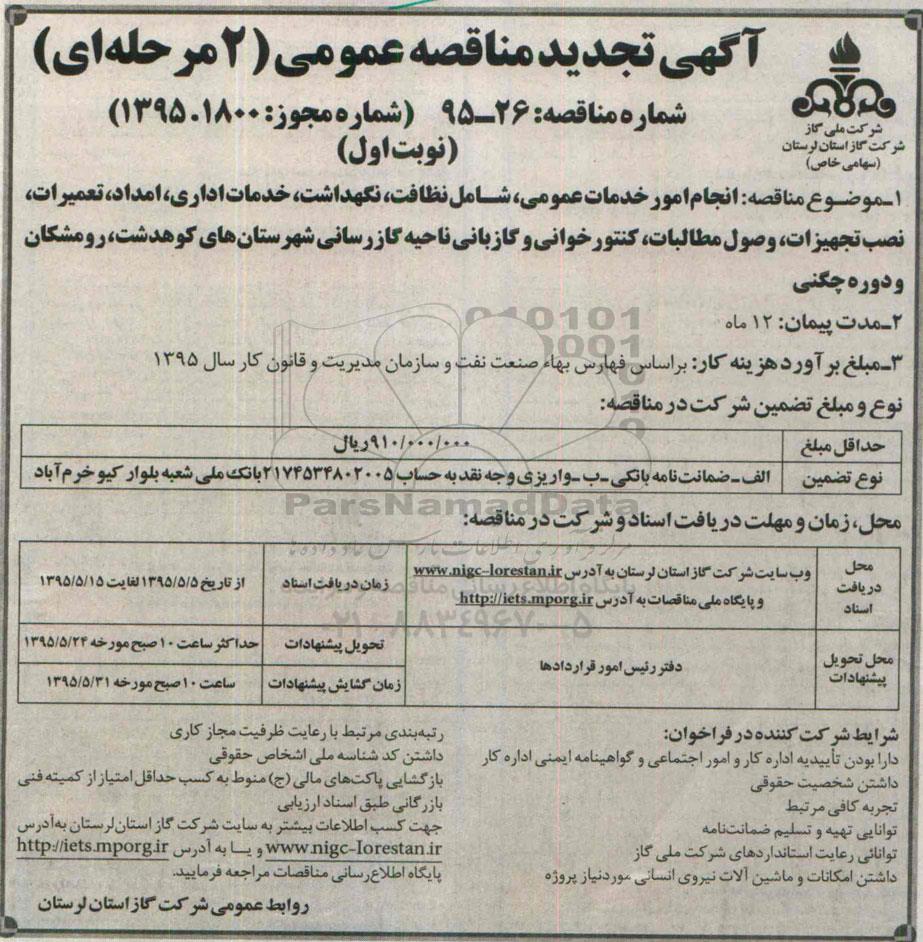 آگهی تجدید مناقصه عمومی (۲ مرحله‌ای)
شماره مناقصه: ۲۶-۹۵ (شماره مجوز: ۱۸۰۰.۱۳۹۵)
(نوبت اول)
شرکت ملی گاز
شرکت گاز استان لرستان
(سهامی خاص)
۱-موضوع مناقصه: انجام امور خدمات عمومی، شامل نظافت، نگهداشت، خدمات اداری، امداد، تعمیرات،
نصب تجهیزات، وصول مطالبات، کنتورخوانی و گازبانی ناحیه گازرسانی شهرستان‌های کوهدشت، رومشکان
و دوره چگنی
۲-مدت پیمان: ۱۲ ماه
۳-مبلغ برآورد هزینه کار: براساس فهارس بهاء صنعت نفت و سازمان مدیریت و قانون کار سال ۱۳۹۵
نوع و مبلغ تضمین شرکت در مناقصه:
حداقل مبلغ ۹۱۰/۰۰۰/۰۰۰ریال
نوع تضمین الف-ضمانت‌نامه بانکی-ب-واریزی وجه نقد به حساب ۲۱۷۴۵۳۴۸۰۲۰۰۵بانک ملی شعبه بلوار کیو خرم‌آباد
ParsNamadData
محل، زمان و مهلت دریافت اسناد و شرکت در مناقصه:
محل دریافت اسناد
وب سایت شرکت گاز استان لرستان به آدرس www.nigc-lorestan.ir
و پایگاه ملی مناقصات به آدرس http://iets.mporg.ir
زمان دریافت اسناد از تاریخ ۱۳۹۵/۵/۵ لغایت ۱۳۹۵/۵/۱۵
۰۲۱-۸۸۳۴۹۶۷۰-۵
محل تحویل پیشنهادات
دفتر رئیس امور قراردادها
تحویل پیشنهادات حداکثر ساعت ۱۰ صبح مورخه ۱۳۹۵/۵/۲۴
زمان گشایش پیشنهادات ساعت ۱۰ صبح مورخه ۱۳۹۵/۵/۳۱
شرایط شرکت کننده در فراخوان:
دارا بودن تأییدیه اداره کار و امور اجتماعی و گواهینامه ایمنی اداره کار
داشتن شخصیت حقوقی
تجربه کافی مرتبط
توانایی تهیه و تسلیم ضمانت‌نامه
توانائی رعایت استانداردهای شرکت ملی گاز
داشتن امکانات و ماشین آلات نیروی انسانی موردنیاز پروژه
رتبه‌بندی مرتبط با رعایت ظرفیت مجاز کاری
داشتن کد شناسه ملی اشخاص حقوقی
بازگشایی پاکت‌های مالی (ج) منوط به کسب حداقل امتیاز از کمیته فنی
بازرگانی طبق اسناد ارزیابی
جهت کسب اطلاعات بیشتر به سایت شرکت گاز استان لرستان به‌آدرس
www.nigc-lorestan.ir و یا به آدرس http://iets.mporg.ir
پایگاه اطلاع‌رسانی مناقصات مراجعه فرمایید.
روابط عمومی شرکت گاز استان لرستان